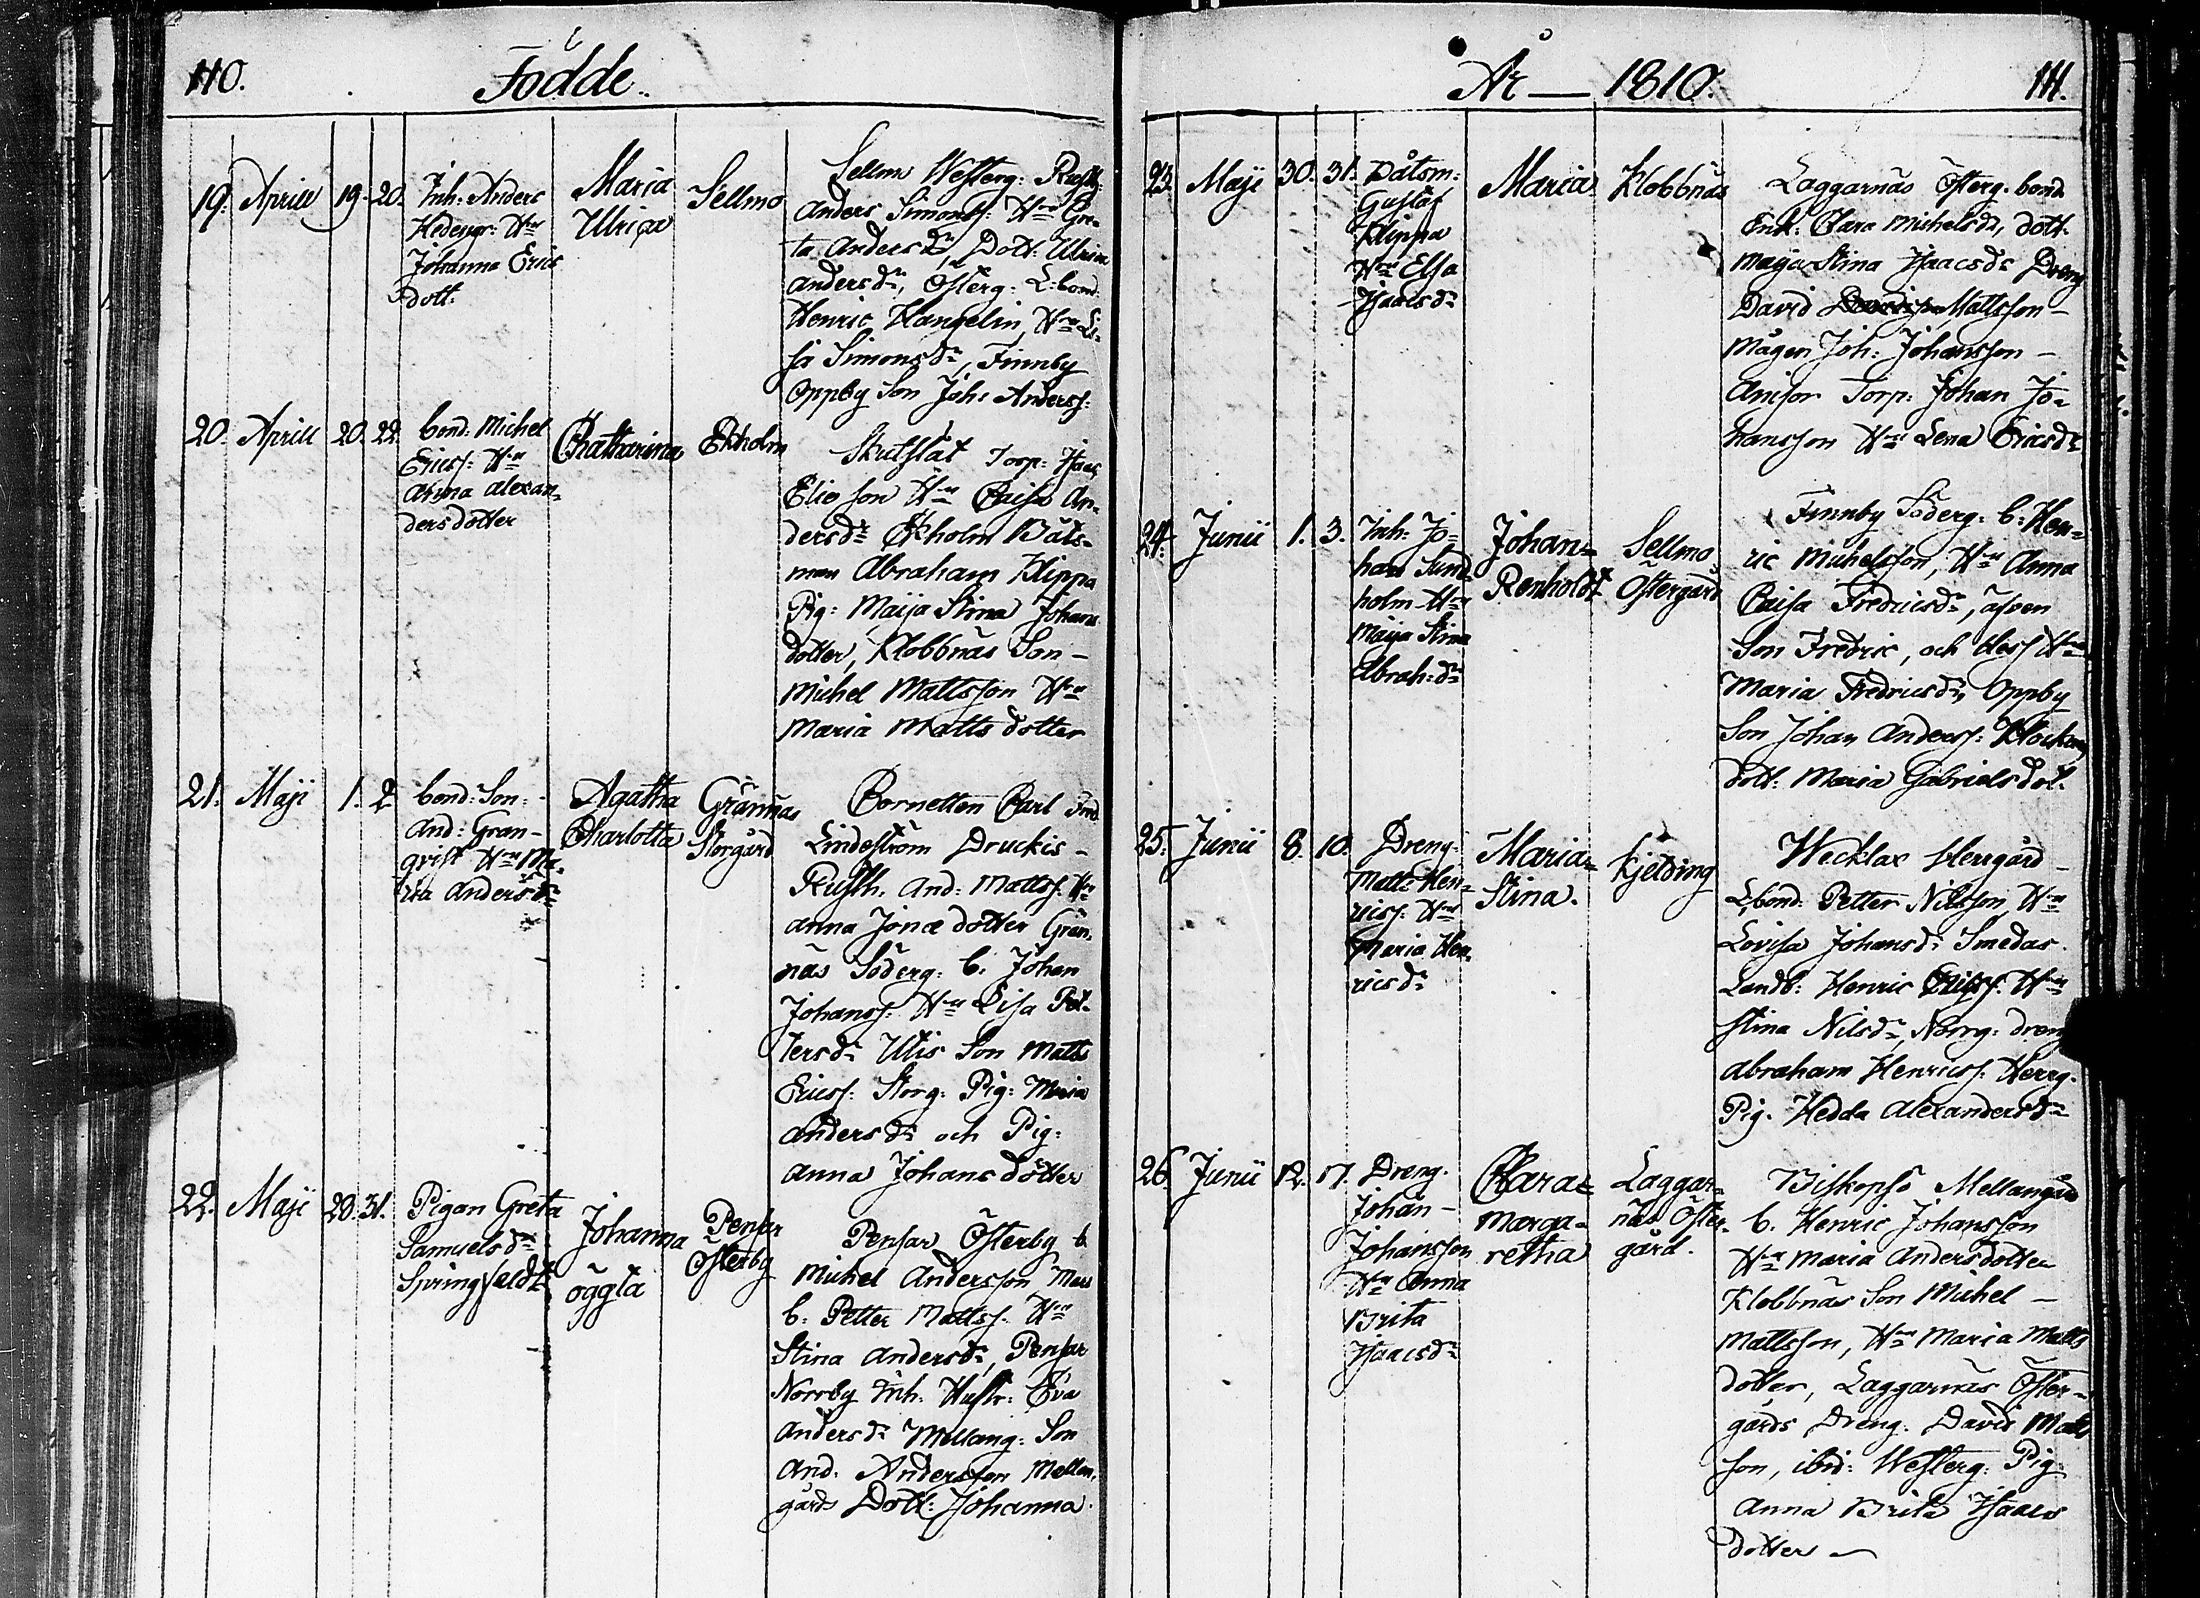 110.
Födde.
19. Aprill 19. 20.
Inh: Anders
Hedengr: Hru
Johanna Erics
dott:
Maria
Ulrica
Sellmo
Sellmo Westerg: Rusth:
Anders Simonss: Hru Gre-
ta Andersdr, Dott: Ulrica
Andersdr, Österg: L:bond
Henric Hangelin, Hru Li-
sa Simonsdr, Finnby
Oppby Son Joh: Anderss:
20. Aprill 20. 22.
bond: Michel
Ericss: Hru
Anna Alexan-
dersdotter
Chatharina
Ekholm
Skutslät Torp: Isaac
Elieson Hru Caisa An-
dersdr Ekholm Båts-
man Abraham Klippa
Pig: Maija Stina Johans
dotter, Klobbnäs Son -
Michel Mattsson Hru
Maria Matts dotter
21. Maji 1. 2.
bond: Son:
And: Gran-
qvist Hru Ma-
ria Andersdr
Agatha
Charlotta
Grännäs
Storgård
Cornetten Carl Fred
Lindeström Druckis -
Rusth. And: Mattss: Hru
Anna Jonæ dotter Grän-
näs Söderg: b. Johan
Johanss: Hru Lisa Pet-
tersdr Utis Son Matts
Ericss: Storg: Pig: Maria
Andersdr och Pig:
Anna Johans dotter
22. Maji 20. 31.
Pigan Greta
Samuelsdr
Springfeldt
Johanna
öggta
Pensar
Österby
Pensar Österby b.
Michel Andersson
b: Petter Mattss. Hru
Stina Andersdr, Pensar
Norrby Inh. Hustr: Eva
Andersdr Mellang: Son
And. Andersson Mellan-
gårds Dott: Johanna.
År — 1810.
111.
23. Maji 30. 31.
Båtsm:
Gustaf
Klippa
Hru Elsa
Isaacsdr
Maria
Klobbnäs
Laggarnäs Österg. bond
Enk: Clara Michelsdr, dott.
Maija Stina Isaacsdr Dreng
David Davidsson Mattsson -
Mågen Joh: Johansson -
Anisor Torp: Johan Jo-
hansson Hru Lena Ericsdr
24. Junii 1. 3.
Inh: Jo-
han Sund-
holm Hru
Maija Stina
Abrah:dr
Johan
Renholdt
Sellmo
Östergård
Finnby Söderg: b: Hen-
ric Michelsson, Hru Anna
Caisa Fredricsdr, äfven
Son Fredric, och dess Hru
Maria Fredricsdr, Oppby
Son Johan Anderss:
dott: Maria Gabriels dot.
25. Junii 8. 10.
Dreng:
Matts Hen-
ricss: Hru
Maria Hen-
ricsdr
Maria
Stina.
Kjelding
Wecklax Herrgård -
L:bond: Petter Nilsson Hru
Lovisa Johansdr Smedas
Landb: Henric Ericss: Hru
Stina Nilsdr, Norrg: dreng
Abraham Henricss: Herrg.
Pig. Hedda Alexandersdr
26. Junii 12. 17.
Dreng.
Johan -
Johansson
Hru Anna
Brita
Isaacsdr
Clara
Marga-
retha
Laggar-
näs Öster-
gård.
Biskopsö Mellangård
b. Henric Johansson
Hru Maria Andersdotter
Klobbnäs Son Michel -
Mattsson, Hru Maria Matts
dotter, Laggarnäs Öster-
gårds Dreng: David Matts
son, ibid: Westerg: Pig:
Anna Brita Isaacs
dotter